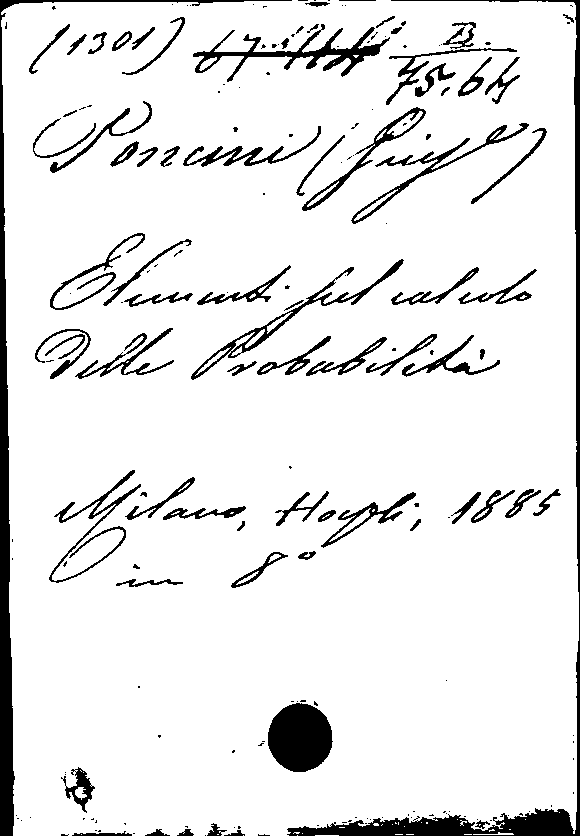 (1301) B.
75.64
Poncini (Giuse)
Elementi sul calcolo
delle Probabilità
Milano, Hoepli, 1885
in 8°